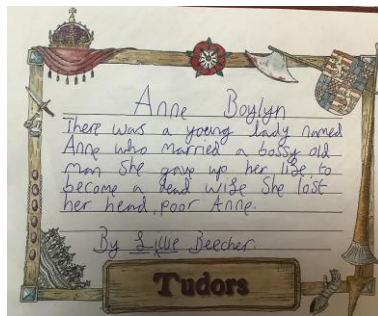 Anne Boylyn
There was a young lady named
Anne who married a bossy old
man She gave up her life, to
become a dead wife She lost
her head, poor Anne.
By Lillie Beecher.
Tudors